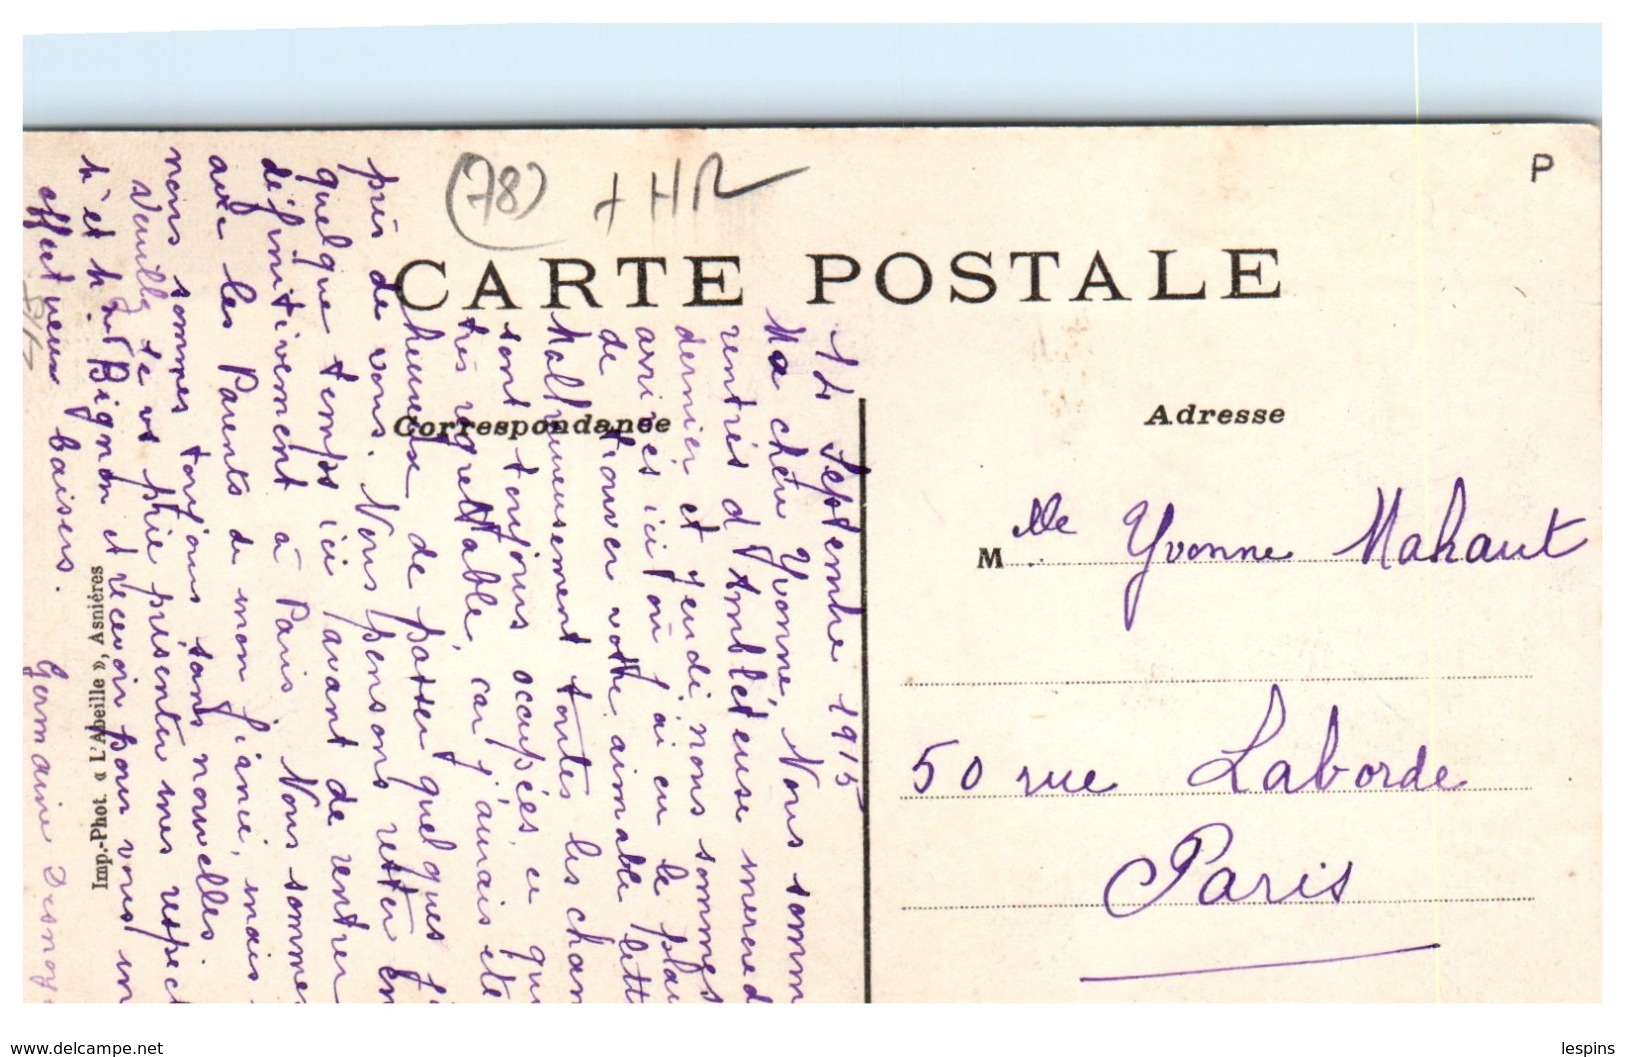 (78) + HR
P
CARTE POSTALE
Correspondance
Adresse
14 Septembre 1915
Ma chère Yvonne, Nous somm
rentrés d'Ambleteuse mercred
dernier et jeudi nous sommes
arrivés ici où j'ai eu le plai
de trouver votre aimable lett
Malheureusement toutes les cham
sont toujours occupées ce qui
très regrettable, car j'aurais été
heureuse de passer quelques j
près de vous. Nous pensons rester en
quelque temps ici avant de rentrer
définitivement à Paris. Nous somme
avec les Parents de mon fiancé, mais
nous sommes toujours sans nouvelles
Veuillez je vs prie présenter mes respec
à et Bignon et recevoir pour vous
affectueux baisers.
Germaine Desnoy
Imp.-Phot. « L'Abeille », Asnières
Mlle Yvonne Mahaut
50 rue Laborde
Paris
www.delcampe.net
lespins